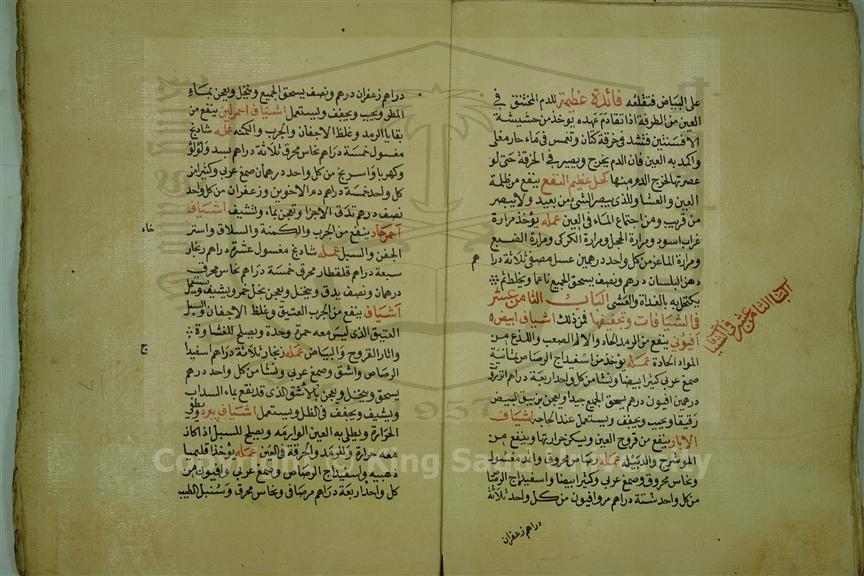 على البياض فتقلعه فائدة عظيمة للدم المختنق في
العين من الطرفة اذا تقادم عهده يوخذ من حشيشة
الافسنتين وتشد في خرقة كتان وتغمس في ماء حار مغلي
واكمد به العين فان الدم يخرج ويصير في الخرقة حتى لو
عصرتها لخرج الدم منها كحل عظيم النفع ينفع من ظلمة
العين والعشا والذي يبصر الشي من بعيد ولا يبصر
من قريب ومن اجتماع الماء في العين عمله يؤخذ مرارة
غراب اسود ومرارة الحجل ومرارة الكركي ومرارة الضبع
ومرارة الماعز من كل واحد درهمين عسل مصفى ثلاثة درا
دهن البلسان درهم ونصف يسحق الجميع ناعما ويخلط ثم
يكتحل به بالغداة والعشي الباب الثامن عشر
في الشيافات وتجفيفها فمن ذلك اشياف ابيض
افيوني ينفع من الرمد الحاد والالم الصعب واللذع من
المواد الحادة عمله يؤخذ من اسفيداج الرصاص ثمانية
صمغ عربي كثيرا بيضا ونشا من كل واحد اربعة دراهم انزروت
درهمين افيون درهم يسحق الجميع جيدا ويعجن ببياض البيض
رقيقا ويحبب ويجفف ويستعمل عند الحاجه اشياف
الابار ينفع من قروح العين ويسكن حرارتها وينفع من
الموسرج والدبيلة عمله رصاص محروق واثمد مغسول
ونحاس محروق وصمغ عربي وكثيرا بيضا واسفيداج الرصا
من كل واحد ستة دراهم مر وافيون من كل واحد ثلاثة
دراهم زعفران
الباب الثامن عشر في الشيافا
م
دراهم زعفران درهم ونصف يسحق الجميع وينخل ويعجن بماء
المطر ويحبب ويجفف ويستعمل اشياف احمر لين ينفع من
بقايا الرمد وغلظ الاجفان والجرب والكمنه عمله شادنج
مغسول خمسة دراهم نحاس محرق ثلاثة دراهم بسد ولولؤ
وكهربا واسرنج من كل واحد درهمان صمغ عربي وكثيرا من
كل واحد خمسة دراهم دم الاخوين وزعفران من كل واحد
نصف درهم تدق الاجزا وتعجن بماء وتشيف اشياف
احمر حاد ينفع من الجرب والكمنة والسلاق واستر
الجفن والسبل عمله شادنج مغسول عشرة دراهم زنجار
سبعة دراهم قلقطار محرق خمسة دراهم نحاس محرق
درهمان ونصف يدق وينخل ويعجن بخل خمر ويشيف ويستعمل
اشياف ينفع من الجرب العتيق وغلظ الاجفان والسبل
العتيق الذي ليس معه حمرة وحدة ويصلح للغشاوة
واثار القروح والبياض عمله زنجار ثلاثة دراهم اسفيدا
الرصاص واشق وصمغ عربي ونشا من كل واحد درهم
يسحق وينخل ويعجن بالاشق الذي قد ينقع بماء السداب
ويشيف ويجفف في الظل ويستعمل اشياف يبرد
الحرارة ويطلى به العين الوارمه ويصلح للسبل اذا كانت
معه حرارة وللرمد والحرقة في العين عمله يوخذ اقليميا
ذهبيه واسفيداج الرصاص وصمغ عربي وافيون من
كل واحد اربعة دراهم مر صافي ونحاس محرق وسنبل الطيب
خاء
ج